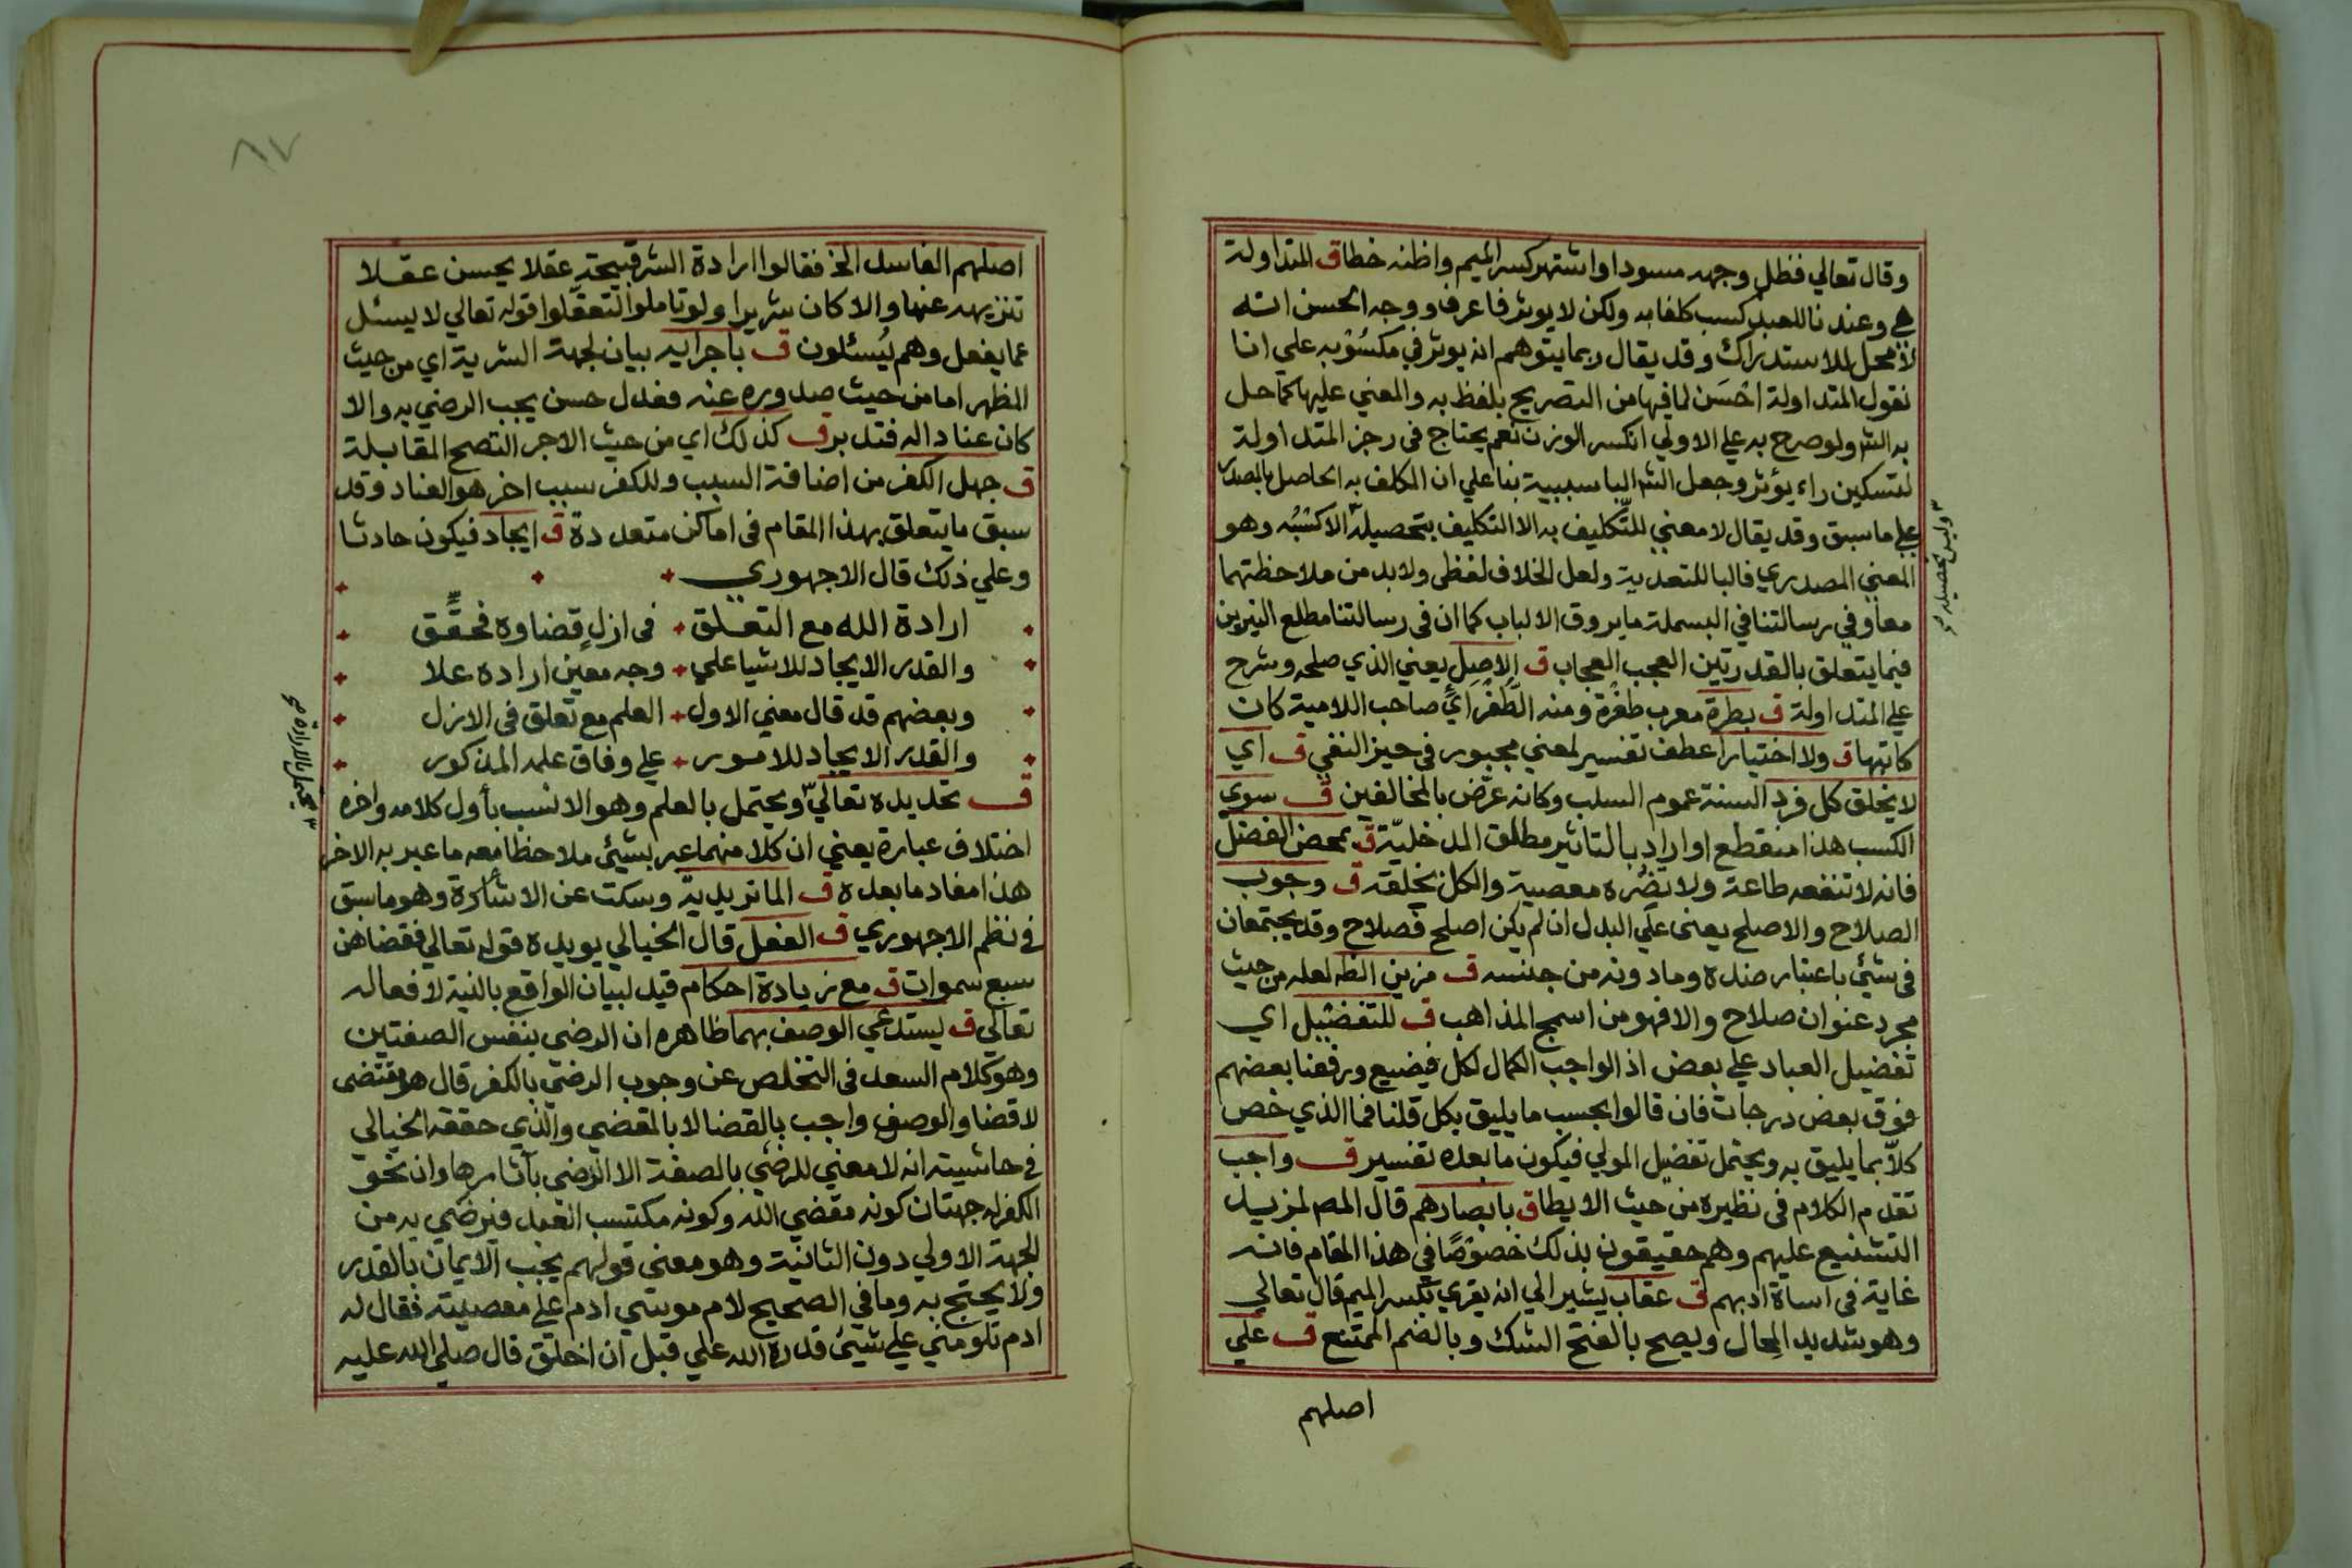 وقال تعالي فظل وجهه مسودا واشتهر كسر الميم واظنه خطا ق المتداولة
هي وعندنا للعبد كسب كلفا به ولكن لا يوثر فاعرفا ووجه الحسن انه
لا محل للاستدراك وقد يقال ربما يتوهم انه يوثر في مكسوبه علي انا
نقول المتداولة احسن لما فيها من التصريح بلفظ به والمعني عليها كما حل
به الش ولو صرح به علي الاولي انكسر الوزن نعم يحتاج في رجز المتداولة
لتسكين راء يوثر وجعل الش البا سببية بنا علي ان المكلف به الحاصل بالمصدر
علي ما سبق وقد يقال لا معني للتكليف به الا التكليف بتحصيله الا كسبه وهو
وليس تحصيله
المعني المصدري فالبا للتعدية ولعل الخلاف لفظي ولا بد من ملاحظتهما
معا وفي رسالتنا في البسملة ما يروق الالباب كما ان في رسالتنا مطلع النيرين
فيما يتعلق بالقدرتين العجب العجاب ق الاصل يعني الذي صلحه وشرح
علي المتداولة ق بطرة معرب طغرة ومنه الطغراي صاحب اللامية كان
كاتبها ق ولا اختيارا عطف تفسير لمعني مجبور في حيز النفي ق اي
لا يخلق كل فرد السنة عموم السلب وكانه عرض بالمخالفين ق سوي
الكسب هذا منقطع او اراد بالتاثير مطلق المدخلية ق بمحض الفضل
فانه لا تنفعه طاعة ولا يضره معصية والكل بخلقه ق وجوب
الصلاح والاصلح يعني علي البدل ان لم يكن اصلح فصلاح وقد يجتمعان
في شيئ باعتبار ضده وما دونه من جنسه ق مزين الظ لعله من حيث
مجرد عنوان صلاح والا فهو من اسمج المذاهب ق للتفضيل اي
تفضيل العباد علي بعض اذ الواجب الكمال لكل فيضيع ورفعنا بعضهم
فوق بعض درجات فان قالوا بحسب ما يليق بكل قلنا فما الذي خص
كلا بما يليق به ويحتمل تفضيل المولي فيكون ما بعده تفسير ق واجب
تقدم الكلام في نظيره من حيث الايطا ق بابصارهم قال المص لمزيد
التشنيع عليهم وهم حقيقون بذلك خصوصا في هذا المقام فانه
غاية في اساة ادبهم ق عقاب يشير الي انه يقري بكسر الميم قال تعالي
وهو شديد المحال ويصح بالفتح الشك وبالضم الممتنع ق علي
اصلهم
٨٧
اصلهم الفاسد الخ فقالوا ارادة الشر قبيحة عقلا يحسن عقلا
تنزيهه عنها والا كان شريرا ولو تاملوا لتعقلوا قوله تعالي لا يسئل
عما يفعل وهم يسئلون ق باجرايه بيان لجهة الشرية اي من حيث
المظهر اما من حيث صدوره عنه فعدل حسن يجب الرضي به والا
كان عنادا له فتدبر ق كذلك اي من حيث الاجر التصح المقابلة
ق جهل الكفر من اضافة السبب وللكفر سبب اخر هو العناد وقد
سبق ما يتعلق بهذا المقام في اماكن متعددة ق ايجاد فيكون حادثا
وعلي ذلك قال الاجهوري
ارادة الله مع التعلق في ازل قضاوه فحقق
والقدر الايجاد للاشيا علي وجه معين اراده علا
وبعضهم قد قال معني الاول العلم مع تعلق في الازل
والقدر الايجاد للامور علي وفاق علمه المذكور
ق تحديده تعالي ويحتمل بالعلم وهو الانسب بأول كلامه واخره
يحتمل بالارادة
اختلاف عبارة يعني ان كلا منهما عبر بشيئ ملاحظا معه ما عبر به الاخر
هذا مفاد ما بعده ق الماتريدية وسكت عن الاشاعرة وهو ما سبق
في نظم الاجهوري ق الفعل قال الخيالي يويده قوله تعالي فقضاهن
سبع سموات ق مع زيادة احكام قيل لبيان الواقع بالنية لافعاله
تعالي ق يستدعي الوصف بهما ظاهره ان الرضي بنفس الصفتين
وهو كلام السعد في التخلص عن وجوب الرضي بالكفر قال هو مقتضي
لا قضا والوصف واجب بالقضا لا بالمقضي والذي حققه الخيالي
في حاشيته انه لا معني للرضي بالصفة الا الرضي بآثارها وان نحو
الكفر له جهتان كونه مقضي الله وكونه مكتسب العبد فيرضي به من
الجهة الاولي دون الثانية وهو معني قولهم يجب الايمان بالقدر
ولا يحتج به وما في الصحيح لام موسي ادم علي معصيته فقال له
ادم تلومني علي شيئ قدره الله علي قبل ان اخلق قال صلي الله عليه